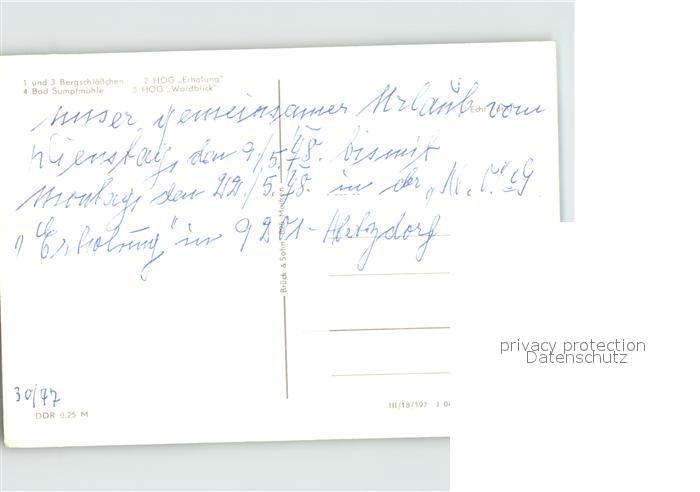 1 und 3 Bergschlößchen 2 HOG „Erholung"
4 Bad Sumpfmühle 5 HOG „Waldblick"
unser gemeinsamer Urlaub vom
Dienstag, den 9/5.78. bis mit
Montag, den 22./5.78. in der
„Erholung" in 9201- Hetzdorf
Brück & Sohn Meißen
30/77
DDR 0,25 M
III/18/197
privacy protection
Datenschutz